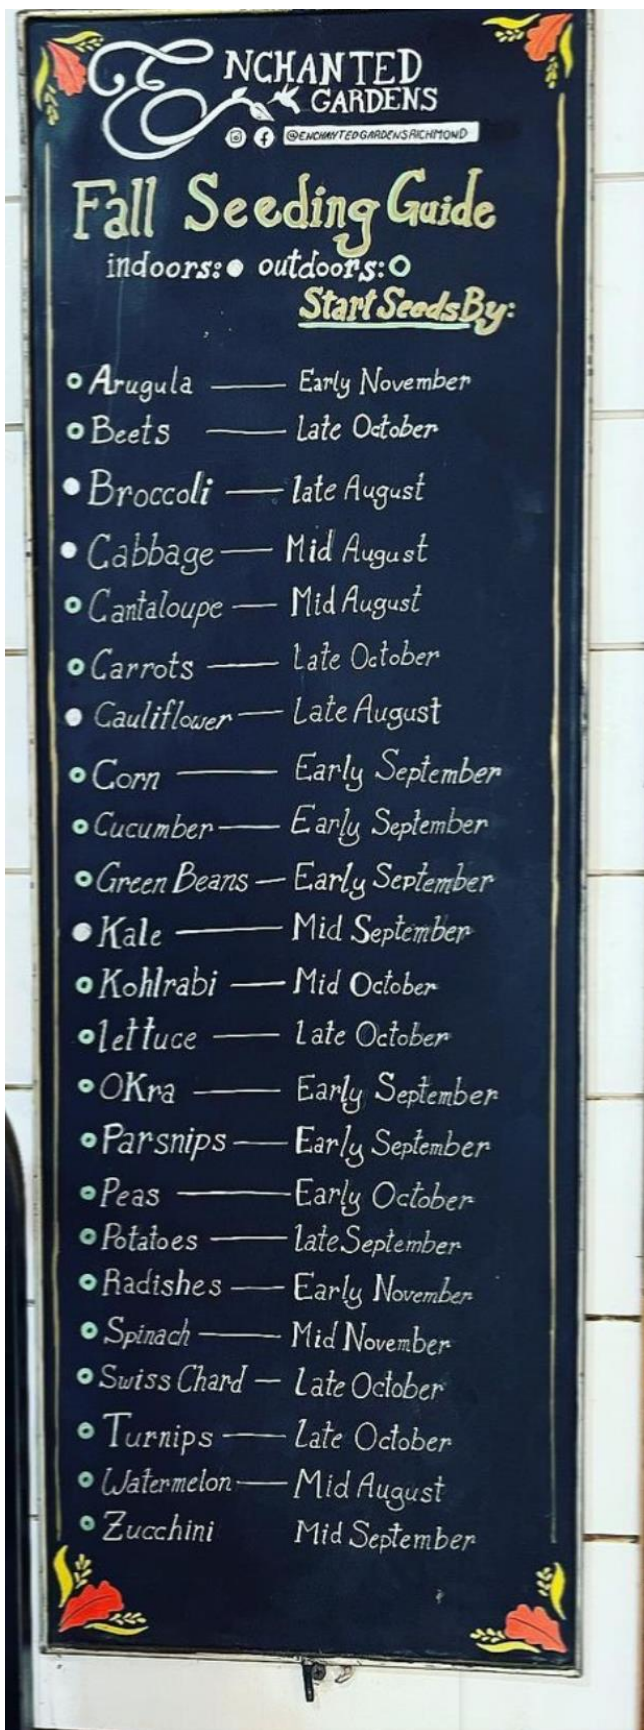 ENCHANTED
GARDENS
@ENCHANTEDGARDENSRICHMOND
Fall Seeding Guide
indoors:● outdoors:○
Start Seeds By:
○ Arugula — Early November
○ Beets — Late October
● Broccoli — late August
● Cabbage — Mid August
○ Cantaloupe — Mid August
○ Carrots — Late October
● Cauliflower — Late August
○ Corn — Early September
○ Cucumber — Early September
○ Green Beans — Early September
● Kale — Mid September
○ Kohlrabi — Mid October
○ lettuce — Late October
○ OKra — Early September
○ Parsnips — Early September
○ Peas — Early October
○ Potatoes — late September
○ Radishes — Early November
○ Spinach — Mid November
○ Swiss Chard — Late October
○ Turnips — Late October
○ Watermelon — Mid August
○ Zucchini Mid September